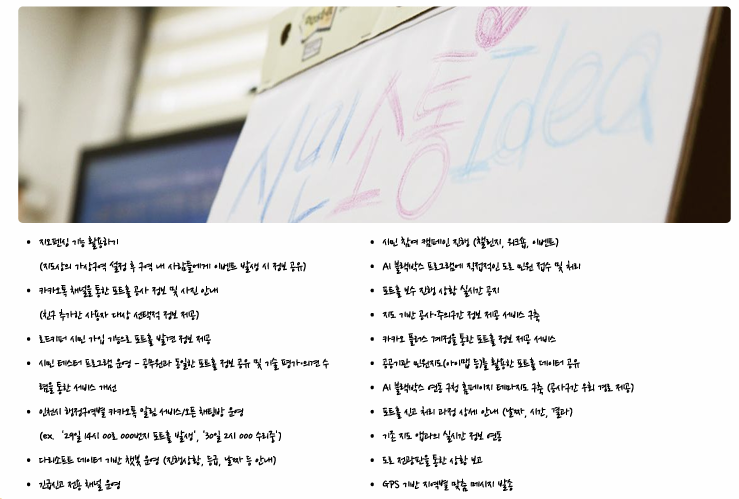 Post-it
시민
소통
Idea
• 지오펜싱 기능 활용하기
(지도상의 가상구역 설정 후 구역 내 사람들에게 이벤트 발생 시 정보 공유)
• 카카오톡 채널을 통한 포트홀 공사 정보 및 사진 안내
(친구 추가한 사용자 대상 선택적 정보 제공)
• 로드키퍼 시민 가입 기능으로 포트홀 발견 정보 제공
• 시민 테스터 프로그램 운영 - 공무원과 동일한 포트홀 정보 공유 및 기술 평가·의견 수
렴을 통한 서비스 개선
• 인천시 행정구역별 카카오톡 알림 서비스/오픈 채팅방 운영
(ex. '29일 14시 00로 000번지 포트홀 발생', '30일 2시 000 수리중')
• 다리소프트 데이터 기반 챗봇 운영 (진행상황, 등급, 날짜 등 안내)
• 긴급신고 전용 채널 운영
• 시민 참여 캠페인 진행 (챌린지, 워크숍, 이벤트)
• AI 블랙박스 프로그램에 직접적인 도로 민원 접수 및 처리
• 포트홀 보수 진행 상황 실시간 공지
• 지도 기반 공사·주의구간 정보 제공 서비스 구축
• 카카오 플러스 계정을 통한 포트홀 정보 제공 서비스
• 공공기관 민원지도(아이맵 등)를 활용한 포트홀 데이터 공유
• AI 블랙박스 연동 구청 홈페이지 테마지도 구축 (공사구간 우회 경로 제공)
• 포트홀 신고 처리 과정 상세 안내 (날짜, 시간, 결과)
• 기존 지도 앱과의 실시간 정보 연동
• 도로 전광판을 통한 상황 보고
• GPS 기반 지역별 맞춤 메시지 발송